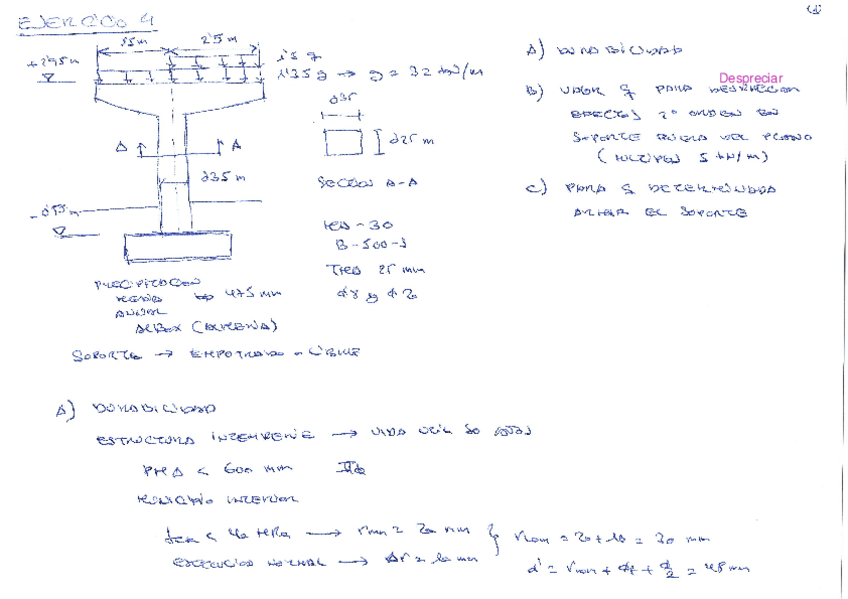 EJERCICIO 4
3'5 m
2'5 m
+ 2'95 m
1'5 q
1'35 g → g = 32 kN/m
0'35
0'25 m
A
A
0'35 m
SECCION A-A
HA-30
B-500-S
TMA 25 mm
PRECIPITACION
MEDIA → 475 mm
ANUAL
ALBOX (ALMERIA)
SOPORTE → EMPOTRADO - LIBRE
A) DURABILIDAD
Despreciar
B) VALOR q PARA DESPRECIAR
EFECTOS 2º ORDEN EN
SOPORTE FUERA DEL PLANO
(MULTIPLO 5 kN/m)
C) PARA q DETERMINADA
ARMAR EL SOPORTE
A) DURABILIDAD
ESTRUCTURA INTEMPERIE → VIDA UTIL 50 AÑOS
PMA < 600 mm IIb
MUNICIPIO INTERIOR
fck < 40 MPa → rmin = 20 mm
rnom = 20 + 10 = 30 mm
EJECUCION NORMAL → Δr = 10 mm
d' = rnom + φt + φ/2 = 48 mm